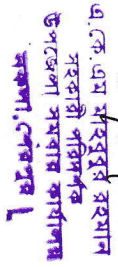 এ. কে. এম মাহবুবুর রহমান
সহকারী পরিদর্শক
উপজেলা সমবায় কার্যালয়